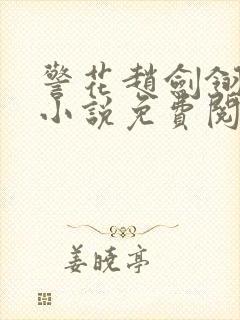 警花趙劍翎
小說免費閱
姜曉亭